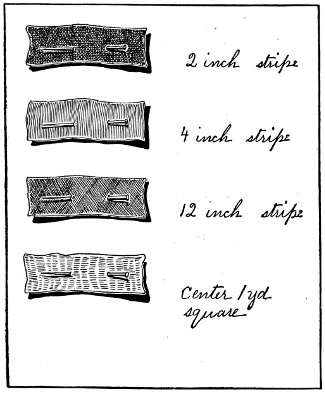 2 inch stripe
4 inch stripe
12 inch stripe
Center 1 yd
square